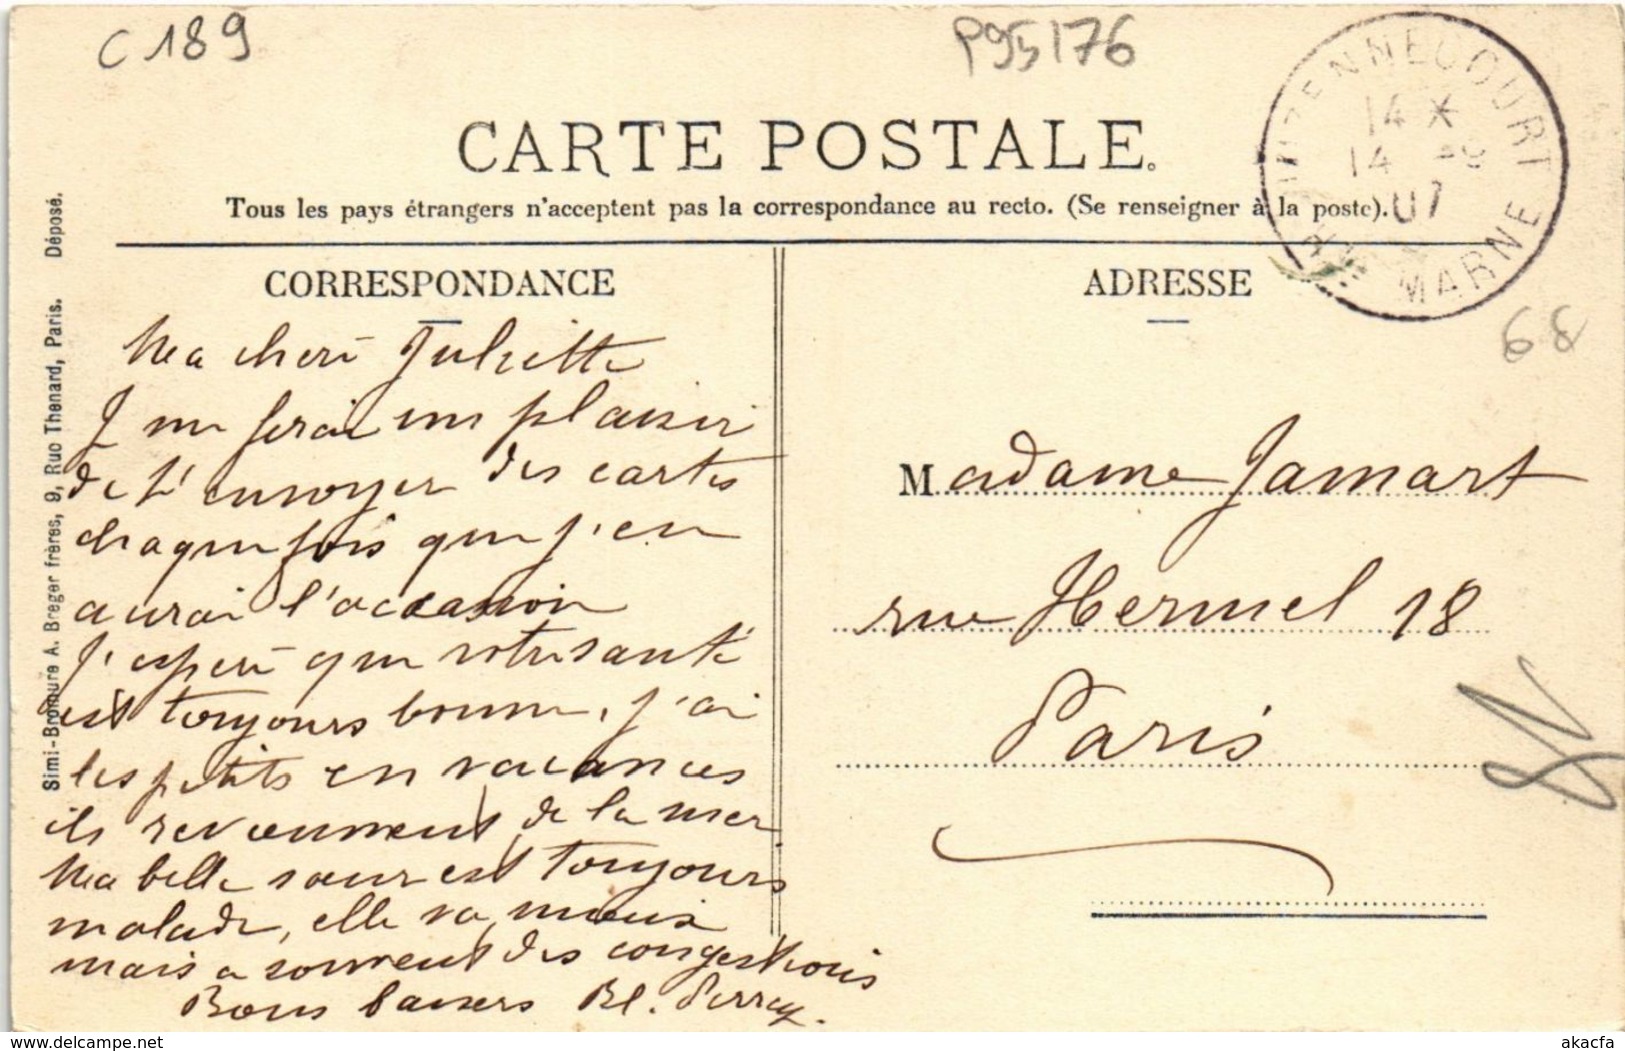 C 189
P95176
CARTE POSTALE.
Tous les pays étrangers n'acceptent pas la correspondance au recto. (Se renseigner à la poste).
VIZENNECOURT
14 *
14 -8
07
HTE MARNE
CORRESPONDANCE
Ma chère Juliette
Je me ferai un plaisir
de t'envoyer des cartes
chaque fois que j'en
aurai l'occasion
J'espère que votre santé
est toujours bonne, j'ai
les petits en vacances
ils reviennent de la mer
Ma belle sœur est toujours
malade, elle va mieux
mais a souvent des congestions
Bons baisers Bl. Perrey.
ADRESSE
68
Madame Jamart
rue Hermel 18
Paris
Simi-Bromure A. Breger frères, 9, Rue Thenard, Paris. Déposé.
www.delcampe.net
akacfa